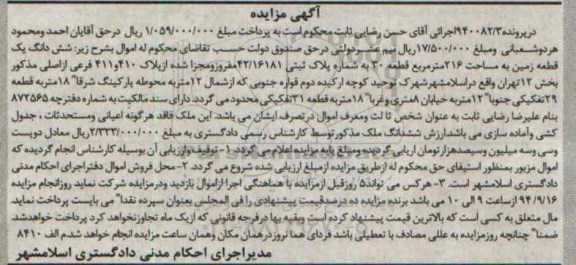 آگهی مزایده
درپرونده۹۴۰۰۸۲/۳اجرائی آقای حسن رضایی ثابت محکوم است به پرداخت مبلغ ۱/۰۵۹/۰۰۰/۰۰۰ ریال درحق آقایان احمدومحمود
هردوشعبانی ومبلغ ۱۷/۵۰۰/۰۰۰ریال نیم عشردولتی درحق صندوق دولت حسب تقاضای محکوم له اموال بشرح زیر: شش دانگ یک
قطعه زمین به مساحت ۲۱۶مترمربع قطعه ۳۰ به شماره پلاک ثبتی ۴۲/۱۶۱۸۱مفروزومجزا شده ازپلاک ۴۱۰و۴۱۱ فرعی ازاصلی مذکور
بخش ۱۲تهران واقع دراسلامشهرشهرک توحید کوچه ارکیده دوم قواره جنوبی که ازشمال ۱۲متربه محوطه پارکینگ شرقا" ۱۸متربه قطعه
۲۹تفکیکی جنوبا" ۱۲متربه خیابان ۸متری وغربا" ۱۸متربه قطعه ۳۱تفکیکی محدودمی گردد. دارای سند مالکیت به شماره دفترچه ۸۷۲۵۶۵
بنام علیرضا رضایی ثابت به عنوان شخص ثا لث ومعرف اموال درتصرف ایشان می باشد. این ملک فاقد هرگونه اعیانی ومستحدثات ، جدول
کشی وآماده سازی می باشدارزش ششدانگ ملک مذکورتوسط کارشناس رسمی دادگستری به مبلغ ۲/۳۳۳/۰۰۰/۰۰۰ریال معادل دویست
وسی وسه میلیون وسیصدهزارتومان ارزیابی گردیده ومبلغ پایه مزایده اعلام می گردد. ۱- توقیف وارزیابی آن بوسیله کارشناس انجام گردیده که
اموال مزبور بمنظور استیفای حق محکوم له ازطریق مزایده ازمبلغ ارزیابی شده شروع می گردد ۲-محل فروش اموال دفتراجرای احکام مدنی
دادگستری اسلامشهر است. ۳- هرکس می تواند۵ روزقبل ازمزایده با هماهنگی اجرا ازاموال بازدید ودرمزایده شرکت نماید روزانجام مزایده
۹۴/۹/۱۶ ازساعت ۹ الی ۱۰ می باشد برنده مزایده ده درصدقیمت پیشنهادی را فی المجلس بعنوان سپرده نقدا" می بایست پرداخت نماید.
مال متعلق به کسی است که بالاترین قیمت پیشنهاد کرده است وبقیه بها درفرجه قانونی که ازیک ماه تجاوزنخواهد کرد پرداخت خواهدشد.
ضمنا" چنانچه روزمزایده به عللی مصادف با تعطیلی باشد فردای همان روزدرهمان مکان وهمان ساعت مزایده انجام خواهد شد.م الف ۸۴۱۰
مدیراجرای احکام مدنی دادگستری اسلامشهر